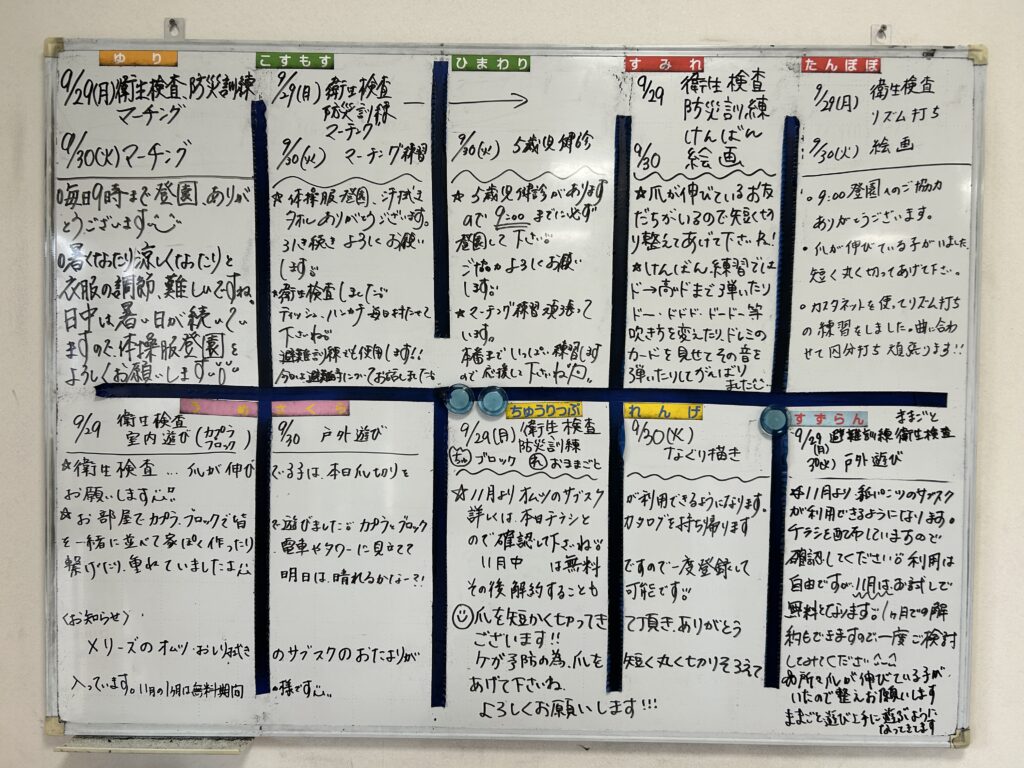 ゆり
9/29(月)衛生検査.防災訓練
マーチング
9/30(火)マーチング
○毎日9時まで登園、ありが
とうございます
○暑くなったり涼しくなったりと
衣服の調節、難しいですね。
日中は暑い日が続いてい
ますので、体操服登園を
よろしくお願いします
こすもす
9/29(月)衛生検査
防災訓練
マーチング
9/30(火) マーチング練習
★体操服登園、汗拭き
タオルありがとうございます。
引き続きよろしくお願い
します。
・衛生検査しました
ティッシュ、ハンカチ毎日持たせて
下さいね
避難訓練でも使用します!!
ひまわり
9/30(火) 5歳児健診
★5歳児健診があります
ので9:00までに必ず
登園して下さい。
ご協力よろしくお願い
します。
★マーチング練習頑張って
います。
本番までいっぱい練習します
ので応援して下さいね
すみれ
9/29 衛生検査
防災訓練
けんばん
9/30 絵画
★爪が伸びているお友
だちがいるので短く切
り整えてあげて下さいね!
★けんばん練習では
ド→高のドまで弾いたり
ドー・ドドド・ドードー等
吹き方を変えたり、ドレミの
カードを見せてその音を
弾いたりしてがんばり
ました
たんぽぽ
9/29(月) 衛生検査
リズム打ち
9/30(火) 絵画
・9:00登園へのご協力
ありがとうございます。
・爪が伸びている子がいました。
短く丸く切ってあげて下さい。
・カスタネットを使ってリズム打ち
の練習をしました。曲に合わ
せて四分打ち頑張ります!!
うめ
さくら
9/29 衛生検査
室内遊び(カプラ
ブロック)
9/30 戸外遊び
☆衛生検査…爪が伸び ている子は、本日爪切りを
お願いします
☆お部屋でカプラ、ブロックで皆 で遊びました カプラやブロック
を一緒に並べて家ぽく作ったり 電車やタワーに見立てて
繋げたり、重ねていました 明日は、晴れるかなー?!
〈お知らせ〉
メリーズのオムツ・おしり拭き のサブスクのおたよりが
入っています。11月の1ヶ月は無料期間 の様です
ちゅうりっぷ
れんげ
9/29(月) 衛生検査
防災訓練
ブロック おままごと
9/30(火)
なぐり描き
☆11月よりオムツのサブスク が利用できるようになります。
詳しくは、本日チラシと カタログを持ち帰ります
ので確認して下さいね
11月中 は無料 ですので一度登録して
その後解約することも 可能です
爪を短かく切ってき て頂き、ありがとう
ございます!!
ケガ予防の為、爪を 短く丸く切りそろえて
あげて下さいね
よろしくお願いします!!!
すずらん
9/29(月) 避難訓練 衛生検査 ままごと
30(火) 戸外遊び
☆11月より紙パンツのサブスク
が利用できるようになります。
チラシを配布していますので
確認してください 利用は
自由ですが、11月はお試しで
無料となります。1ヶ月での解
約もできますので一度ご検討
してみてください
爪が伸びている子が
いたので整えお願いします
ままごと遊び上手に遊ぶように
なってきてます